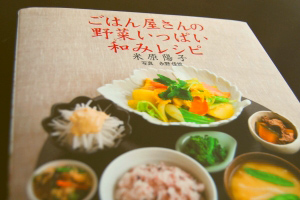 ごはん屋さんの
野菜いっぱい
和みレシピ
米原陽子
写真